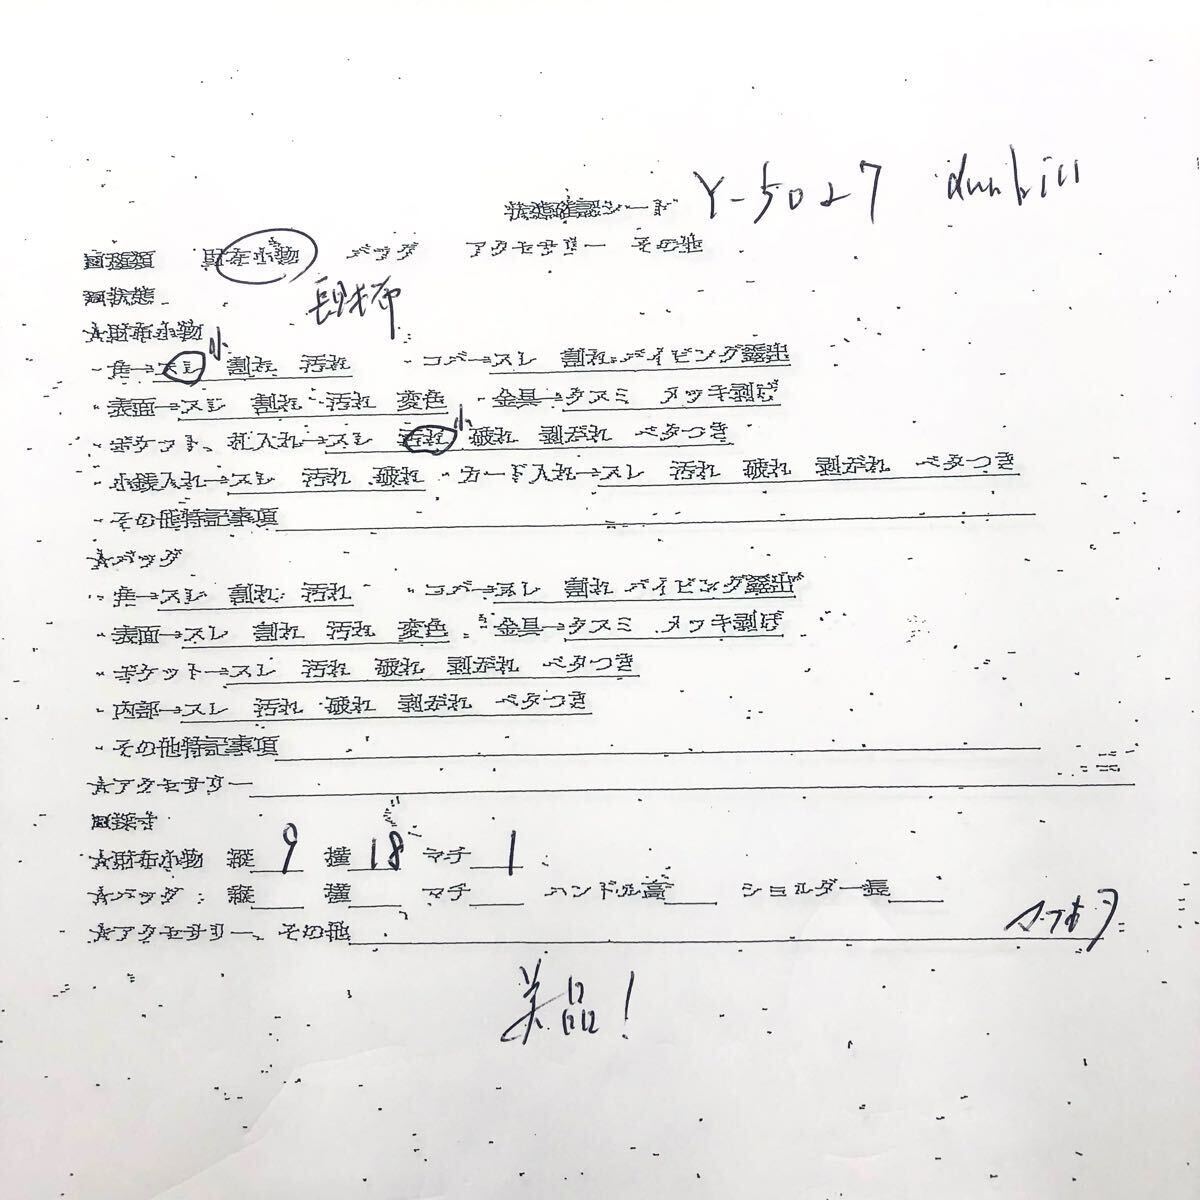 状態確認シード Y-5027 dunhill
□種類 財布小物 バッグ アクセサリー その他
□状態 長財布
★財布小物
・角→スレ 小 割れ 汚れ ・コバ→スレ 割れ パイピング露出
・表面→スレ 割れ 汚れ 変色 ・金具→クスミ メッキ剥げ
・ポケット、札入れ→スレ 汚れ 小 破れ 剥がれ ベタつき
・小銭入れ→スレ 汚れ 破れ ・カード入れ→スレ 汚れ 破れ 剥がれ ベタつき
・その他特記事項
★バッグ
・角→スレ 割れ 汚れ ・コバ→スレ 割れ パイピング露出
・表面→スレ 割れ 汚れ 変色 ・金具→クスミ メッキ剥げ
・ポケット→スレ 汚れ 破れ 剥がれ ベタつき
・内部→スレ 汚れ 破れ 剥がれ ベタつき
・その他特記事項
★アクセサリー
□採寸
★財布小物 縦 9 横 18 マチ 1
★バッグ：縦 横 マチ ハンドル高 ショルダー長
★アクセサリー、その他
美品！